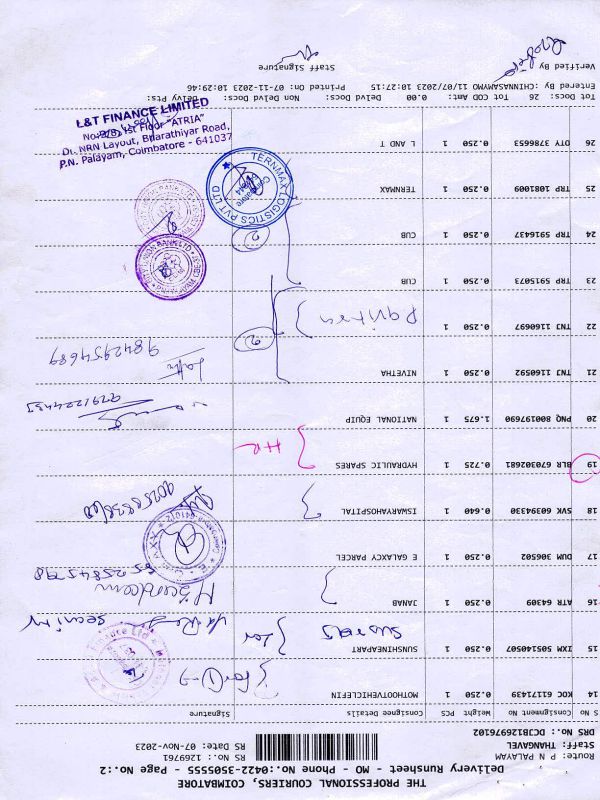 THE PROFESSIONAL COURIERS, COIMBATORE
Delivery Runsheet - MO - Phone No.:0422-3505555 - Page No.:2
Route: P N PALAYAM RS No.: 1269761
Staff: THANGAVEL RS Date: 07-Nov-2023
DRS No.: DCJB126976102
S No Consignment No Weight PCS Consignee Details Signature
14 KOC 61171439 0.250 1 MOTHOOTVEHICLEFIN
15 IXM 505140507 0.250 1 SUNSHINEAPART
security
16 ATR 64309 0.250 1 JANAB
17 DUM 306502 0.250 1 E GALAXCY PARCEL
18 SVK 6094330 0.640 1 ISWARYHOSPITAL
19 BLR 670302681 0.725 1 HYDRAULIC SPARES HR
20 PNQ 800197690 1.675 1 NATIONAL EQUIP
21 TNJ 1160592 0.250 1 NIVETHA
9842954689
2
22 TNJ 1160697 0.250 1
23 TRP 5915073 0.250 1 CUB
24 TRP 5916437 0.250 1 CUB
2
25 TRP 1081009 0.250 1 TERNMAX
TERNMAX LOGISTICS PVT LTD
26 OTY 3786653 0.250 1 L AND T
L&T FINANCE LIMITED
1st Floor "ATRIA"
Dr. NRN Layout, Bharathiyar Road,
P.N. Palayam, Coimbatore - 641037
Tot Docs: 26 Tot COD Amt: 0.00 Delvd Docs: Non Delvd Docs: Delvy Pts:
Entered By :CHINNASAYMO 11/07/2023 10:27:15 Printed On: 07-11-2023 10:29:46
Verified By Staff Signature